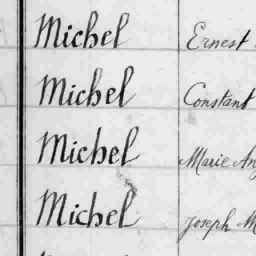 Michel Ernest
Michel Constant
Michel Marie
Michel Joseph